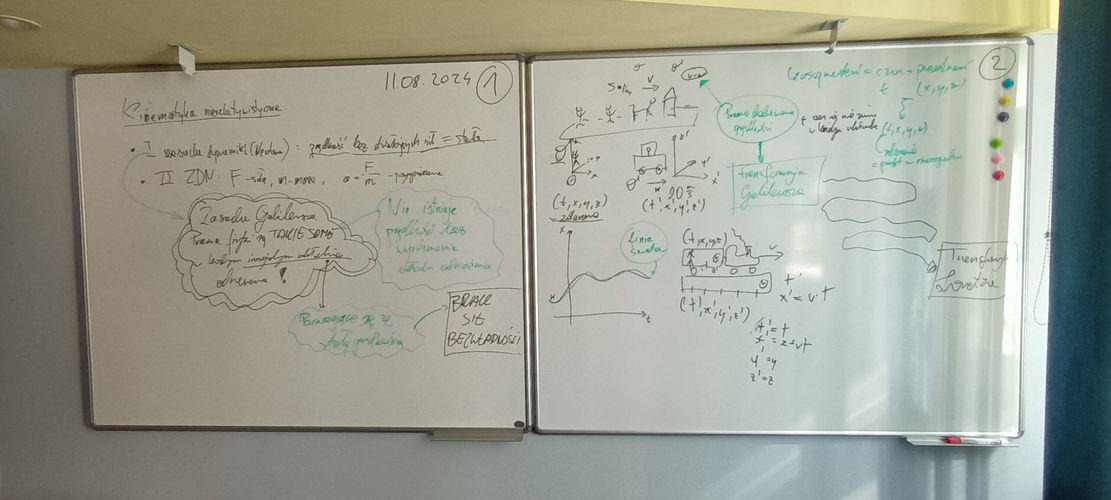 11.08.2024
1
Kinematyka nierelatywistyczna.
• I zasada dynamiki (Newtona): prędkość bez działających sił = stała
• II ZDN: F - siła, m - masa, a = F/m - przyspieszenie
Zasada Galileusza
Prawa fizyki są TAKIE SAME
w każdym inercjalnym układzie
odniesienia!
Nie istnieje
prędkość bez
układu odniesienia
Poruszające się ze
stałą prędkością
BRAK
SIŁ
BEZWŁADNOŚCI
2
5 m/s
v
Czasoprzestrzeń = czas + przestrzeń
t (x, y, z)
(t, x, y, z)
zdarzenie
Prawo dodawania
prędkości
transformacja
Galileusza
(t, x, y, z)
zdarzenie
(t', x', y', z')
z'
y'
x'
x
t
linia
świata
(t, x, y, z)
v
(t', x', y', z')
t'
x' = v·t
t' = t
x' = x + vt
y' = y
z' = z